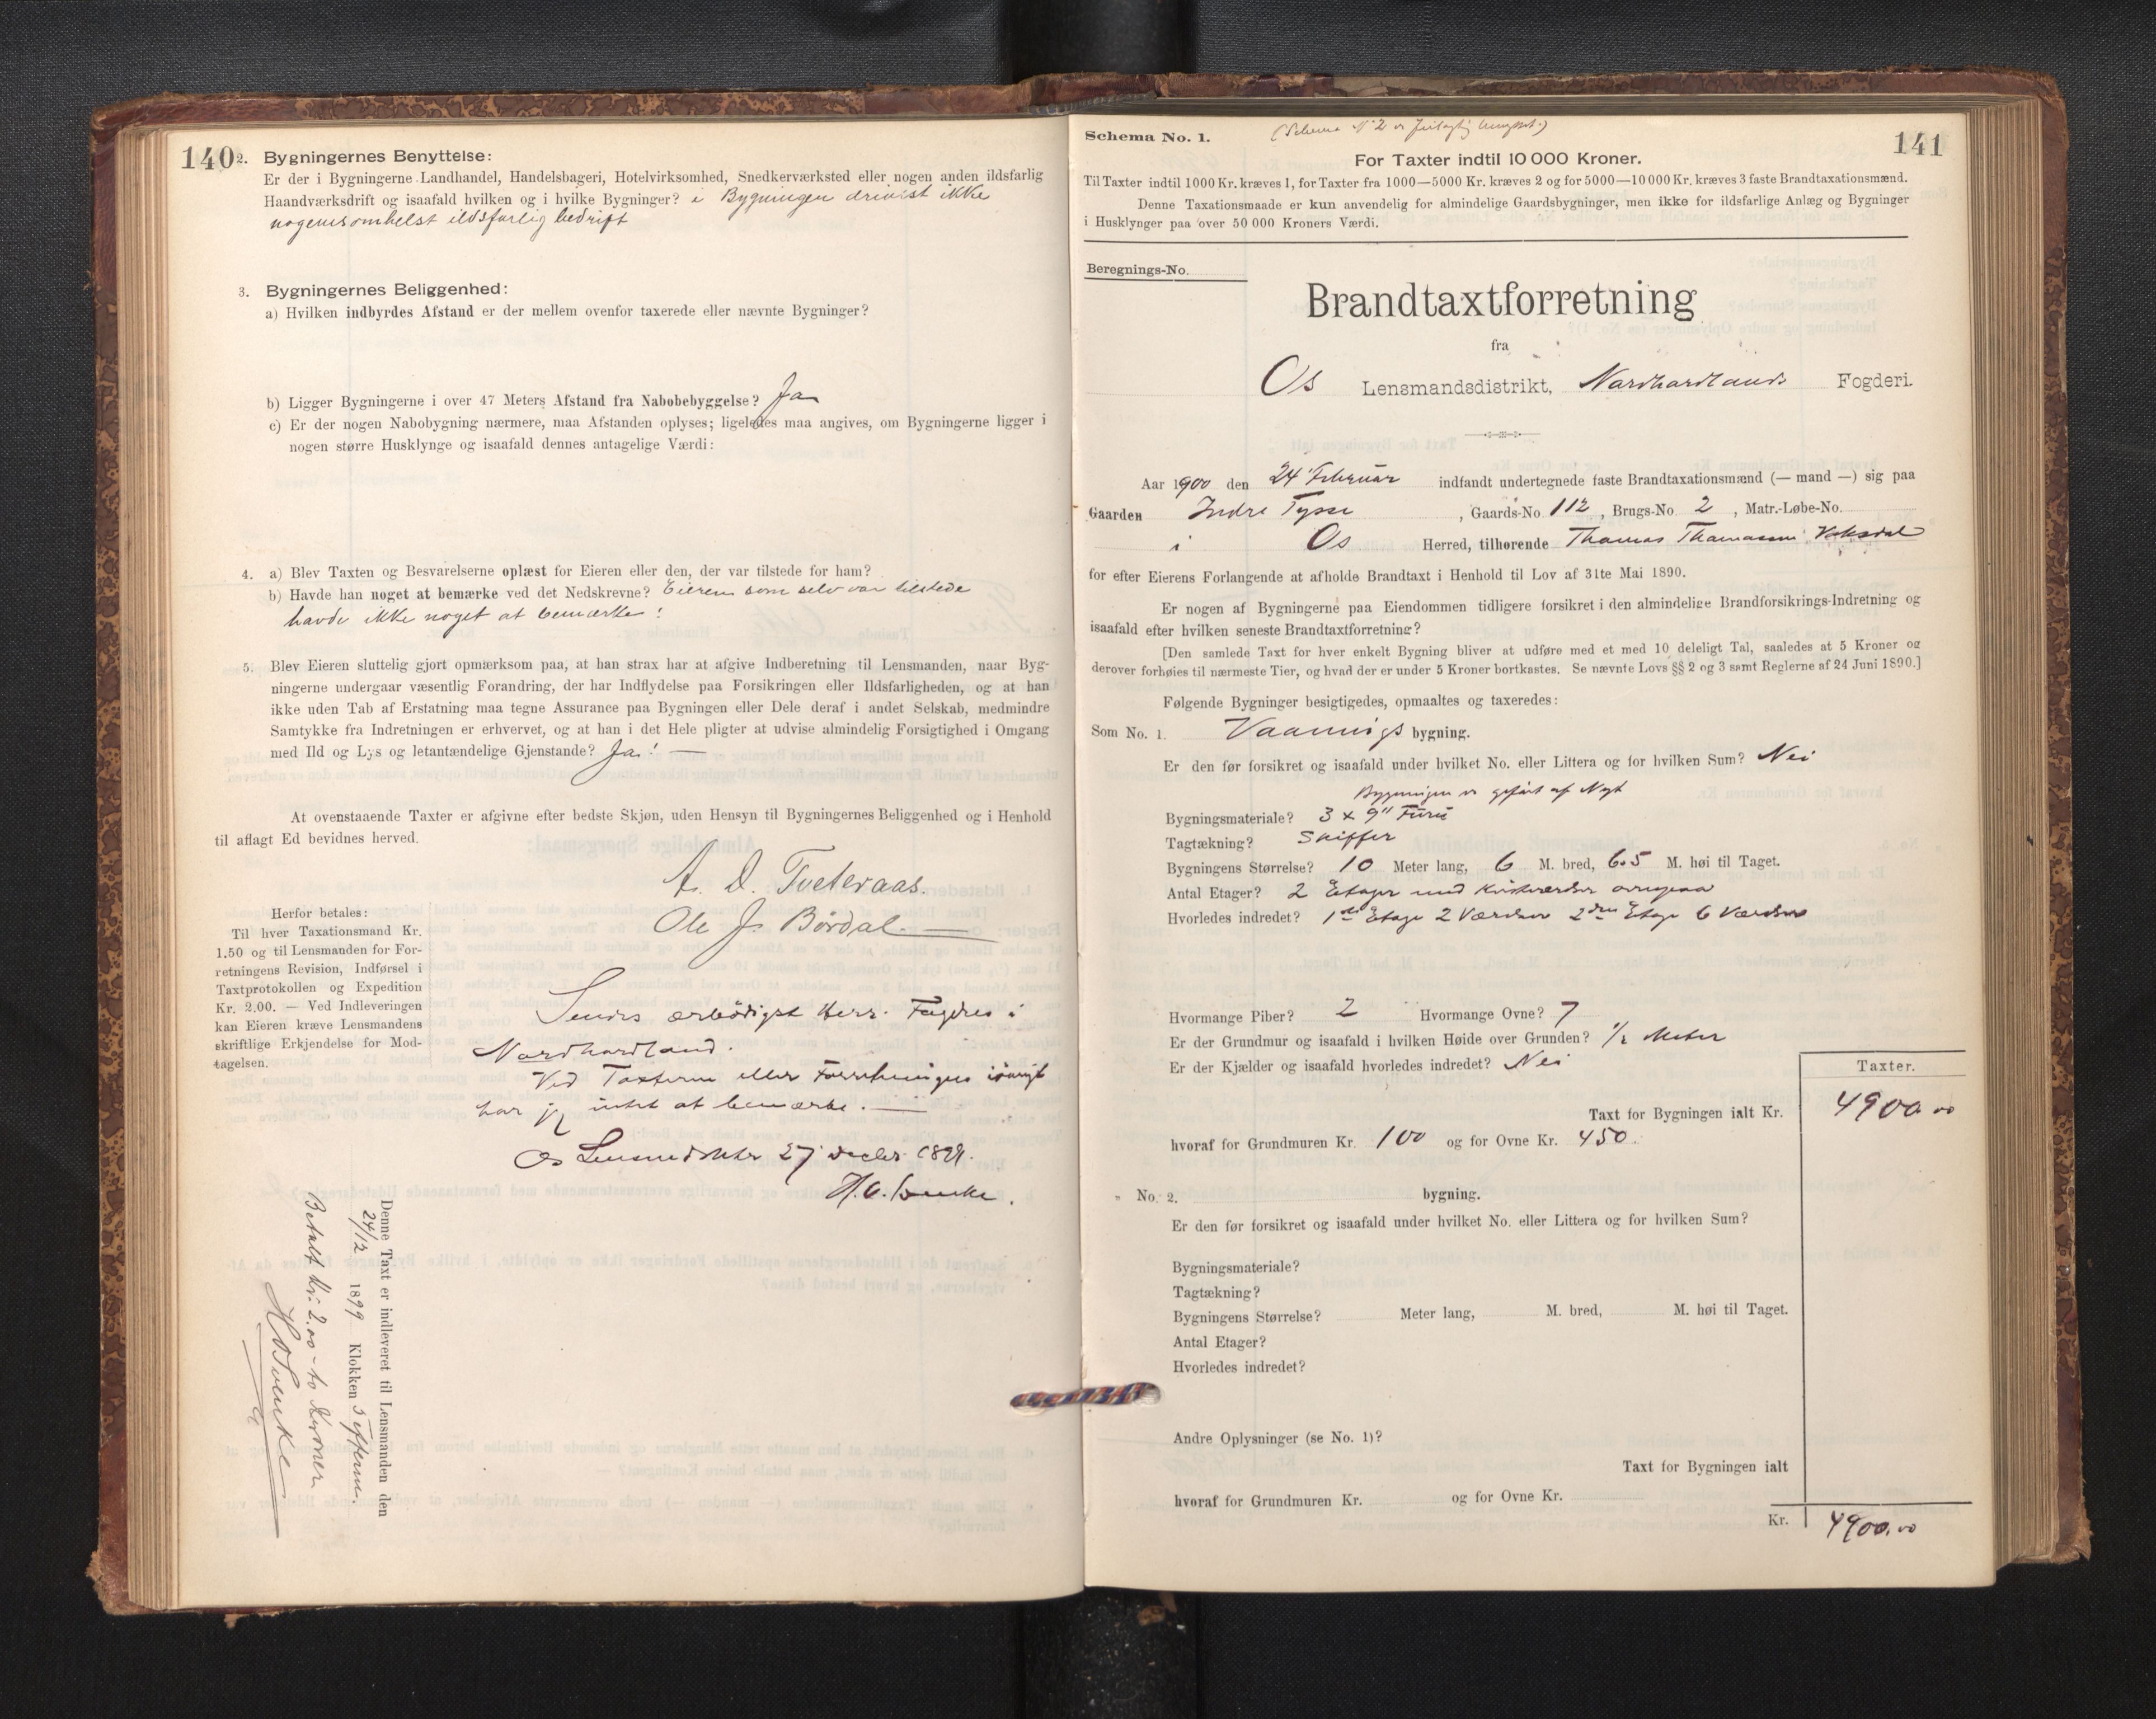 140
2. Bygningernes Benyttelse:
Er der i Bygningerne Landhandel, Handelsbageri, Hotelvirksomhed, Snedkerværksted eller nogen anden ildsfarlig
Haandværksdrift og isaafald hvilken og i hvilke Bygninger? i Bygningen drives ikke
nogensomhelst ildsfarlig bedrift
3. Bygningernes Beliggenhed:
a) Hvilken indbyrdes Afstand er der mellem ovenfor taxerede eller nævnte Bygninger?
b) Ligger Bygningerne i over 47 Meters Afstand fra Nabobebyggelse? Ja
c) Er der nogen Nabobygning nærmere, maa Afstanden oplyses; ligeledes maa angives, om Bygningerne ligger i
nogen større Husklynge og isaafald dennes antagelige Værdi:
4. a) Blev Taxten og Besvarelserne oplæst for Eieren eller den, der var tilstede for ham?
b) Havde han noget at bemærke ved det Nedskrevne? Eieren som selv var tilstede
havde ikke noget at bemærke!
5. Blev Eieren sluttelig gjort opmærksom paa, at han strax har at afgive Indberetning til Lensmanden, naar Byg-
ningerne undergaar væsentlig Forandring, der har Indflydelse paa Forsikringen eller Ildsfarligheden, og at han
ikke uden Tab af Erstatning maa tegne Assurance paa Bygningen eller Dele deraf i andet Selskab, medmindre
Samtykke fra Indretningen er erhvervet, og at han i det Hele pligter at udvise almindelig Forsigtighed i Omgang
med Ild og Lys og letantændelige Gjenstande? Ja! —
At ovenstaaende Taxter er afgivne efter bedste Skjøn, uden Hensyn til Bygningernes Beliggenhed og i Henhold
til aflagt Ed bevidnes herved.
A. D. Tveteraas.
Ole J. Børdal. —
Herfor betales:
Til hver Taxationsmand Kr.
1.50 og til Lensmanden for For-
retningens Revision, Indførsel i
Taxtprotokollen og Expedition
Kr. 2.00. — Ved Indleveringen
kan Eieren kræve Lensmandens
skriftlige Erkjendelse for Mod-
tagelsen.
Sendes ærbødigst Herr. Fogden i
Nordhordland.
Ved Taxterne eller Forretningen iøvrigt
har jeg intet at bemærke. —
Os 27 Decbr. 1899.
Denne Taxt er indleveret til Lensmanden den
24/12 1899 Klokken 5 efterm.
Betalt Kr. 2.00 - to Kroner
Schema No. 1.
(Schema No 2
141
For Taxter indtil 10 000 Kroner.
Til Taxter indtil 1000 Kr. kræves 1, for Taxter fra 1000—5000 Kr. kræves 2 og for 5000—10 000 Kr. kræves 3 faste Brandtaxationsmænd.
Denne Taxationsmaade er kun anvendelig for almindelige Gaardsbygninger, men ikke for ildsfarlige Anlæg og Bygninger
i Husklynger paa over 50 000 Kroners Værdi.
Beregnings-No.
Brandtaxtforretning
fra
Os Lensmandsdistrikt, Nordhordlands Fogderi.
Aar 1900 den 24 Februar indfandt undertegnede faste Brandtaxationsmænd (— mand —) sig paa
Gaarden Indre Tysse, Gaards-No. 112, Brugs-No. 2, Matr.-Løbe-No.
i Os Herred, tilhørende Thomas Thomassen Vaksdal
for efter Eierens Forlangende at afholde Brandtaxt i Henhold til Lov af 31te Mai 1890.
Er nogen af Bygningerne paa Eiendommen tidligere forsikret i den almindelige Brandforsikrings-Indretning og
isaafald efter hvilken seneste Brandtaxtforretning?
[Den samlede Taxt for hver enkelt Bygning bliver at udføre med et med 10 deleligt Tal, saaledes at 5 Kroner og
derover forhøies til nærmeste Tier, og hvad der er under 5 Kroner bortkastes. Se nævnte Lovs §§ 2 og 3 samt Reglerne af 24 Juni 1890.]
Følgende Bygninger besigtigedes, opmaaltes og taxeredes:
Som No. 1. Vaanings bygning.
Er den før forsikret og isaafald under hvilket No. eller Littera og for hvilken Sum? Nei
Bygningen er opført af Nyt
Bygningsmateriale? 3 x 9" Furu
Tagtækning? Skiffer
Bygningens Størrelse? 10 Meter lang, 6 M. bred, 6.5 M. høi til Taget.
Antal Etager? 2 Etager med Kvistværelser ovenpaa
Hvorledes indredet? 1ste Etage 2 Værelser 2den Etage 6 Værelser
Hvormange Piber? 2 Hvormange Ovne? 7
Er der Grundmur og isaafald i hvilken Høide over Grunden? 1/2 Meter
Er der Kjælder og isaafald hvorledes indredet? Nei
Taxter.
Taxt for Bygningen ialt Kr. 4900.00
hvoraf for Grundmuren Kr. 100 og for Ovne Kr. 450.
" No. 2. bygning.
Er den før forsikret og isaafald under hvilket No. eller Littera og for hvilken Sum?
Bygningsmateriale?
Tagtækning?
Bygningens Størrelse? Meter lang, M. bred, M. høi til Taget.
Antal Etager?
Hvorledes indredet?
Andre Oplysninger (se No. 1)?
Taxt for Bygningen ialt
hvoraf for Grundmuren Kr. og for Ovne Kr.
Kr. 4900.00